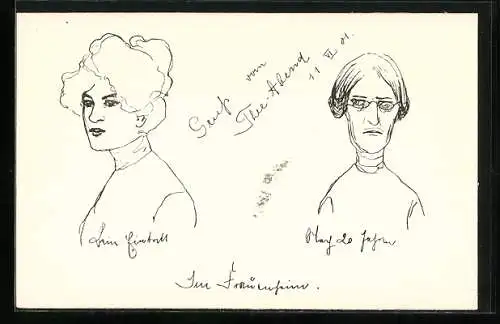 Gruß vom
Thee-Abend
11 VI 01.
Beim Eintritt
Nach 20 Jahren
Im Frauenheim.